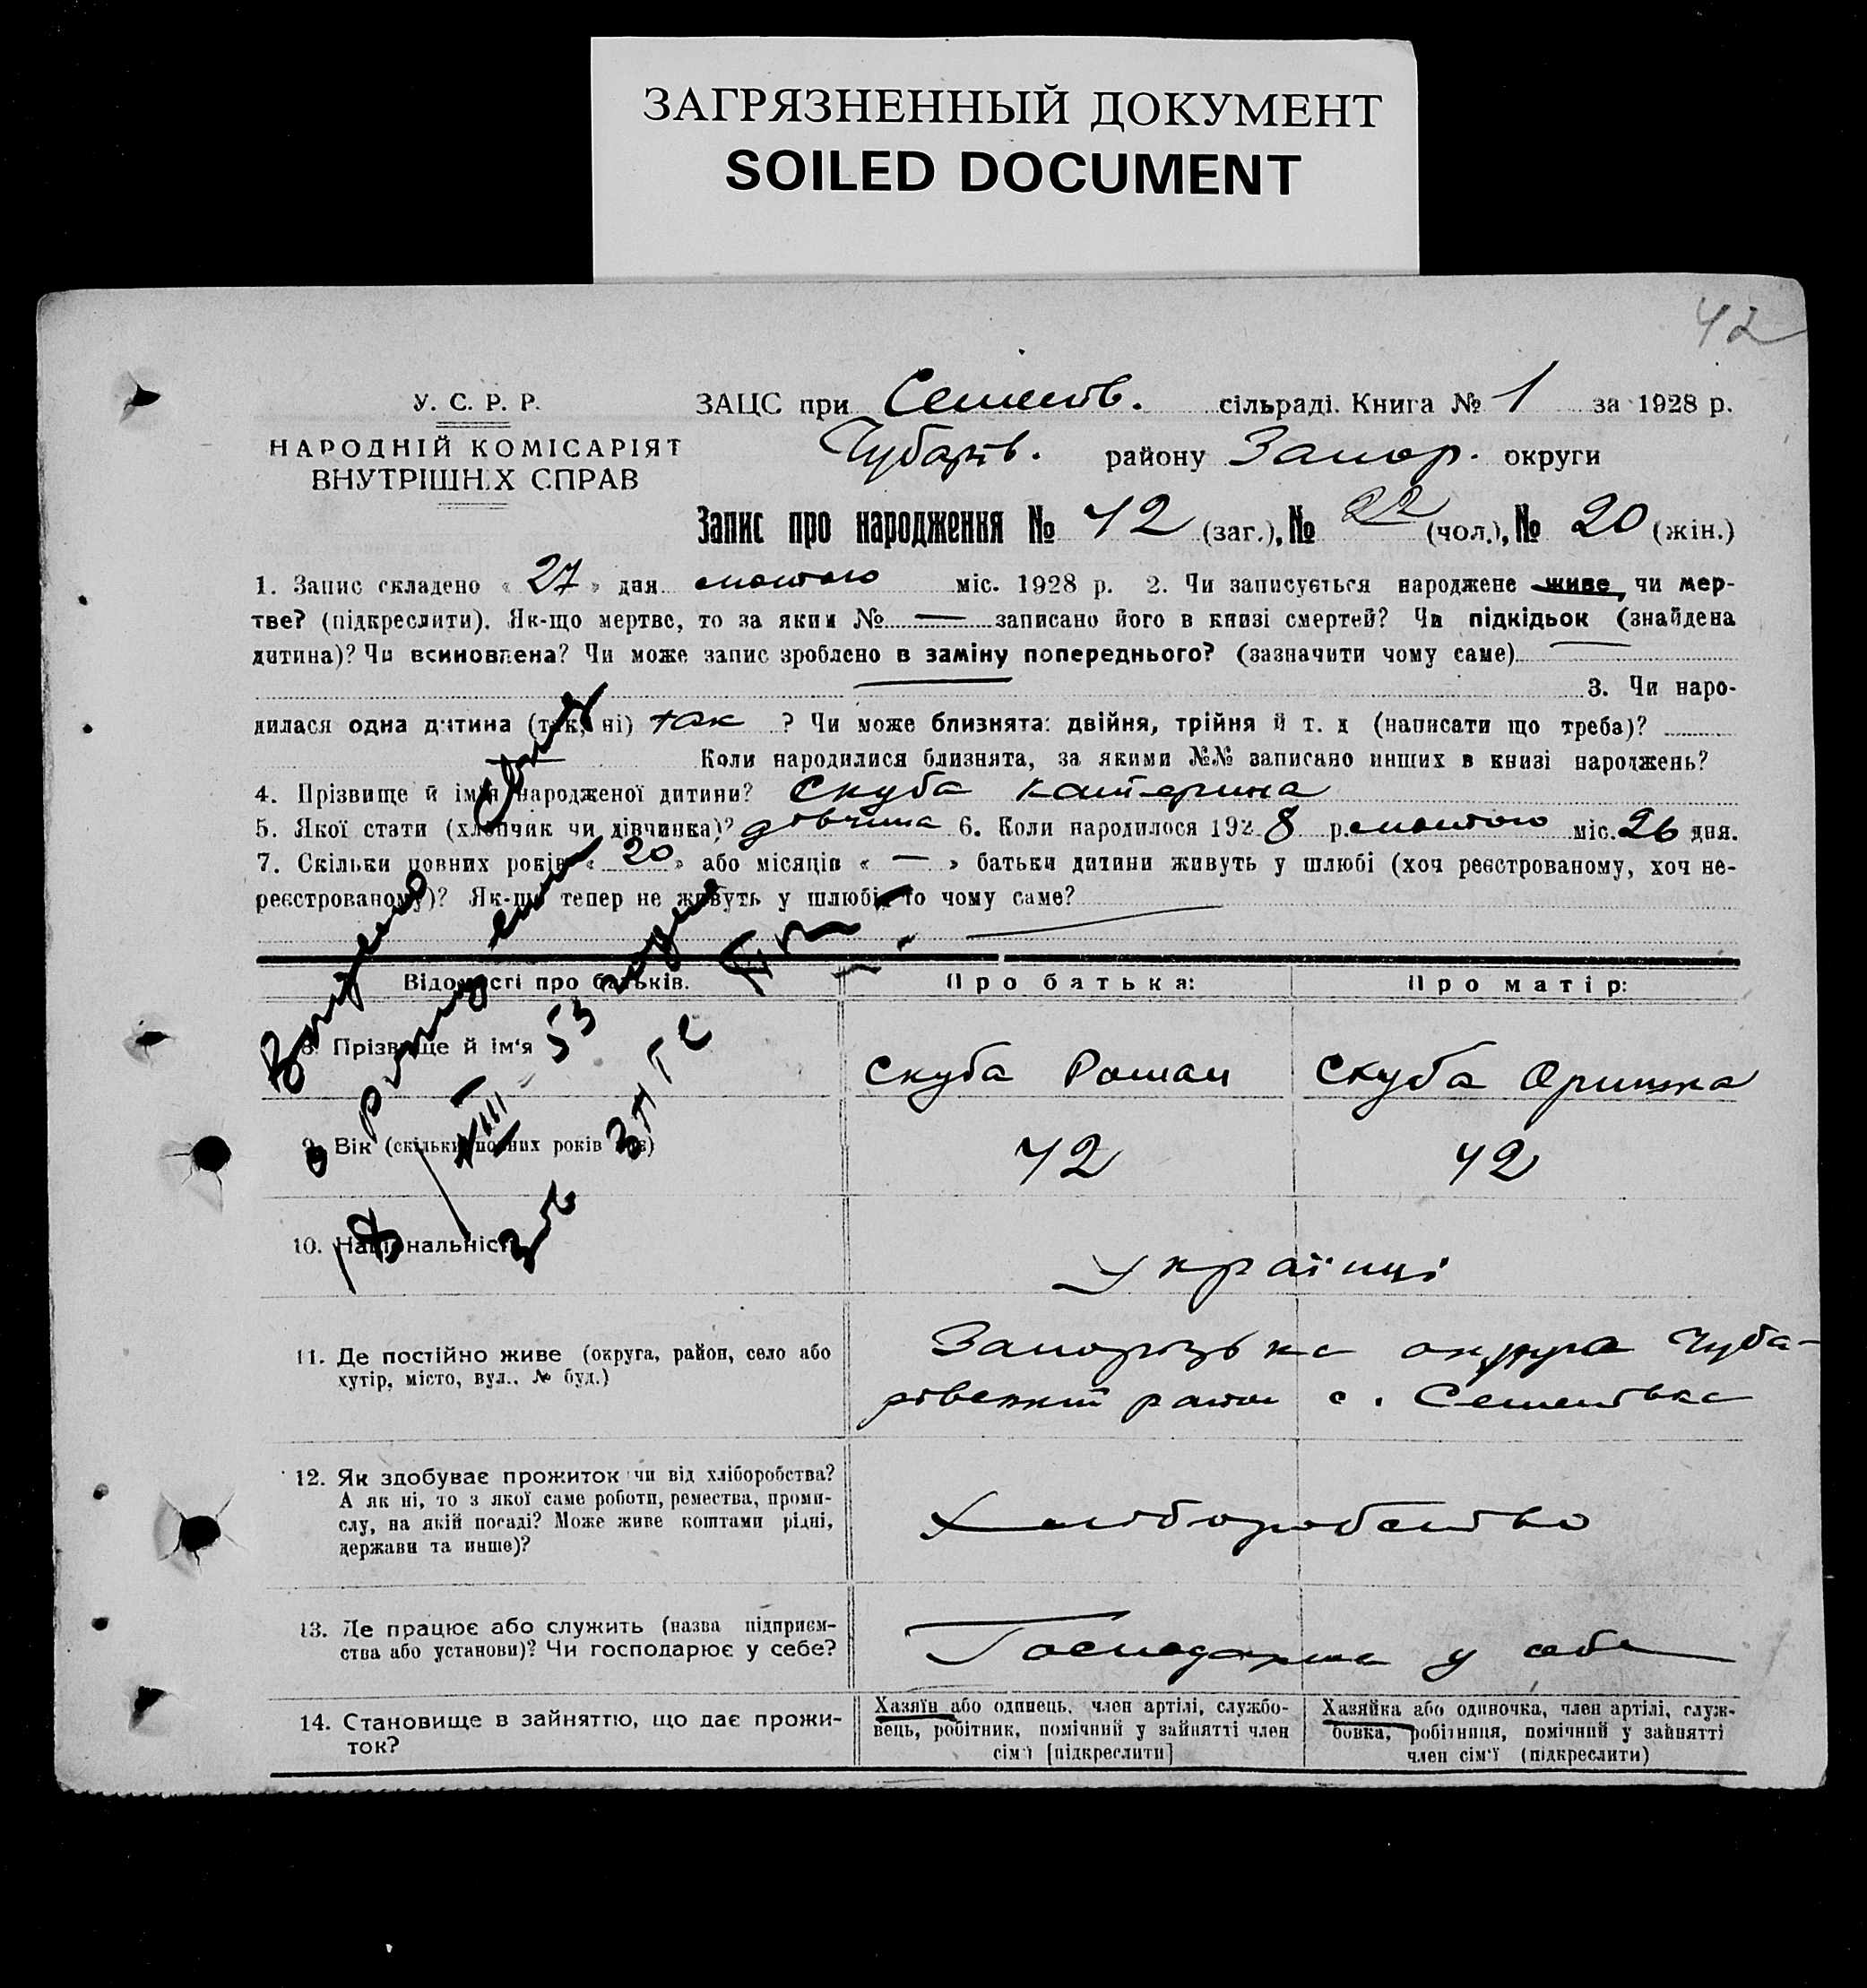 ЗАГРЯЗНЕННЫЙ ДОКУМЕНТ
SOILED DOCUMENT
42
У. С. Р. Р.
НАРОДНІЙ КОМІСАРІЯТ
ВНУТРІШНІХ СПРАВ
ЗАЦС при Семенів. сільраді. Книга № 1 за 1928 р.
Чубарів. району Запор. округи
Запис про народження № 42 (заг.), № 22 (чол.), № 20 (жін.)
1. Запис складено « 27 » дня лютого міс. 1928 р. 2. Чи записується народжене живе, чи мер-
тве? (підкреслити). Як-що мертве, то за яким № — записано його в книзі смертей? Чи підкідьок (знайдена
дитина)? Чи всиновлена? Чи може запис зроблено в заміну попереднього? (зазначити чому саме) —
3. Чи наро-
дилася одна дитина (так, ні) так ? Чи може близнята: двійня, трійня й т. д (написати що треба)?
Коли народилися близнята, за якими №№ записано инших в книзі народжень?
4. Прізвище й ім'я народженої дитини? Скуба Катерина
5. Якої стати (хлопчик чи дівчинка)? дівчина 6. Коли народилося 1928 р. лютого міс. 26 дня.
7. Скільки повних років « 20 » або місяців « — » батьки дитини живуть у шлюбі (хоч реєстрованому, хоч не-
реєстрованому)? Як-що тепер не живуть у шлюбі, то чому саме?
Відомості про батьків. Про батька: Про матір:
8. Прізвище й ім'я Скуба Роман Скуба Оришка
9. Вік (скільки повних років має) 42 42
10. Національність Українці
11. Де постійно живе (округа, район, село або
хутір, місто, вул., № буд.)
Запорізька округа Чуба-
рівський район с. Семенівка
12. Як здобуває прожиток чи від хліборобства?
А як ні, то з якої саме роботи, ремества, проми-
слу, на якій посаді? Може живе коштами рідні,
держави та инше)?
Хліборобство
13. Де працює або служить (назва підприєм-
ства або установи)? Чи господарює у себе?
Господарює у себе
14. Становище в зайняттю, що дає прожи-
ток?
Хазяїн або одинець, член артілі, службо-
вець, робітник, помічний у зайнятті член
сім'ї [підкреслити]
Хазяйка або одиночка, член артілі, служ-
бовка, робітниця, помічний у зайнятті
член сім'ї (підкреслити)